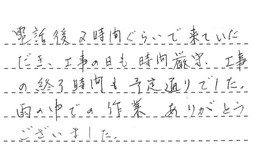 電話後2時間ぐらいで来ていた
だき、工事の日も時間厳守、工事
の終了時間も予定通りでした。
雨の中での作業 ありがとう
ございました。